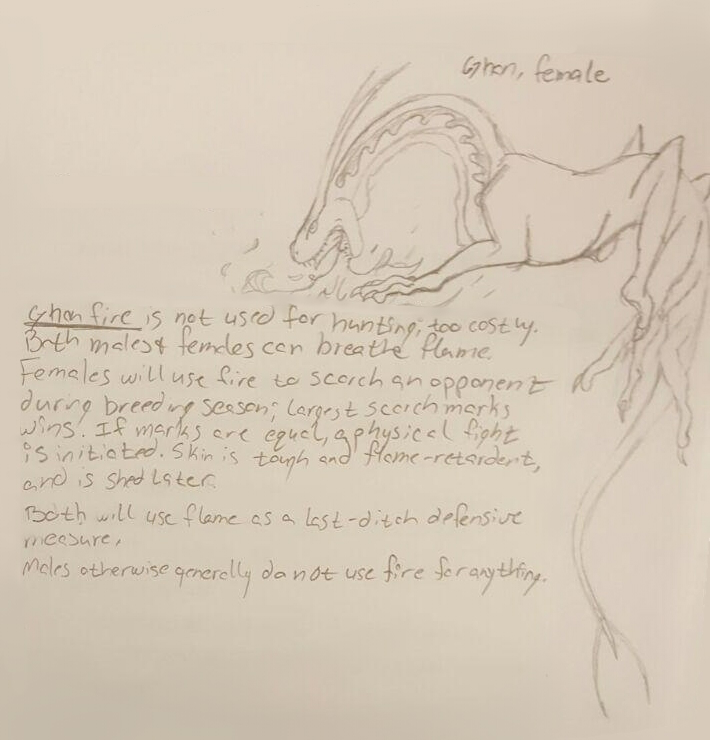 Ghan, female
Ghan fire is not used for hunting; too costly.
Both males & females can breathe flame.
Females will use fire to scorch an opponent
during breeding season; largest scorch marks
wins. If marks are equal, a physical fight
is initiated. Skin is tough and flame-retardent,
and is shed later.
Both will use flame as a last-ditch defensive
measure.
Males otherwise generally do not use fire for anything.